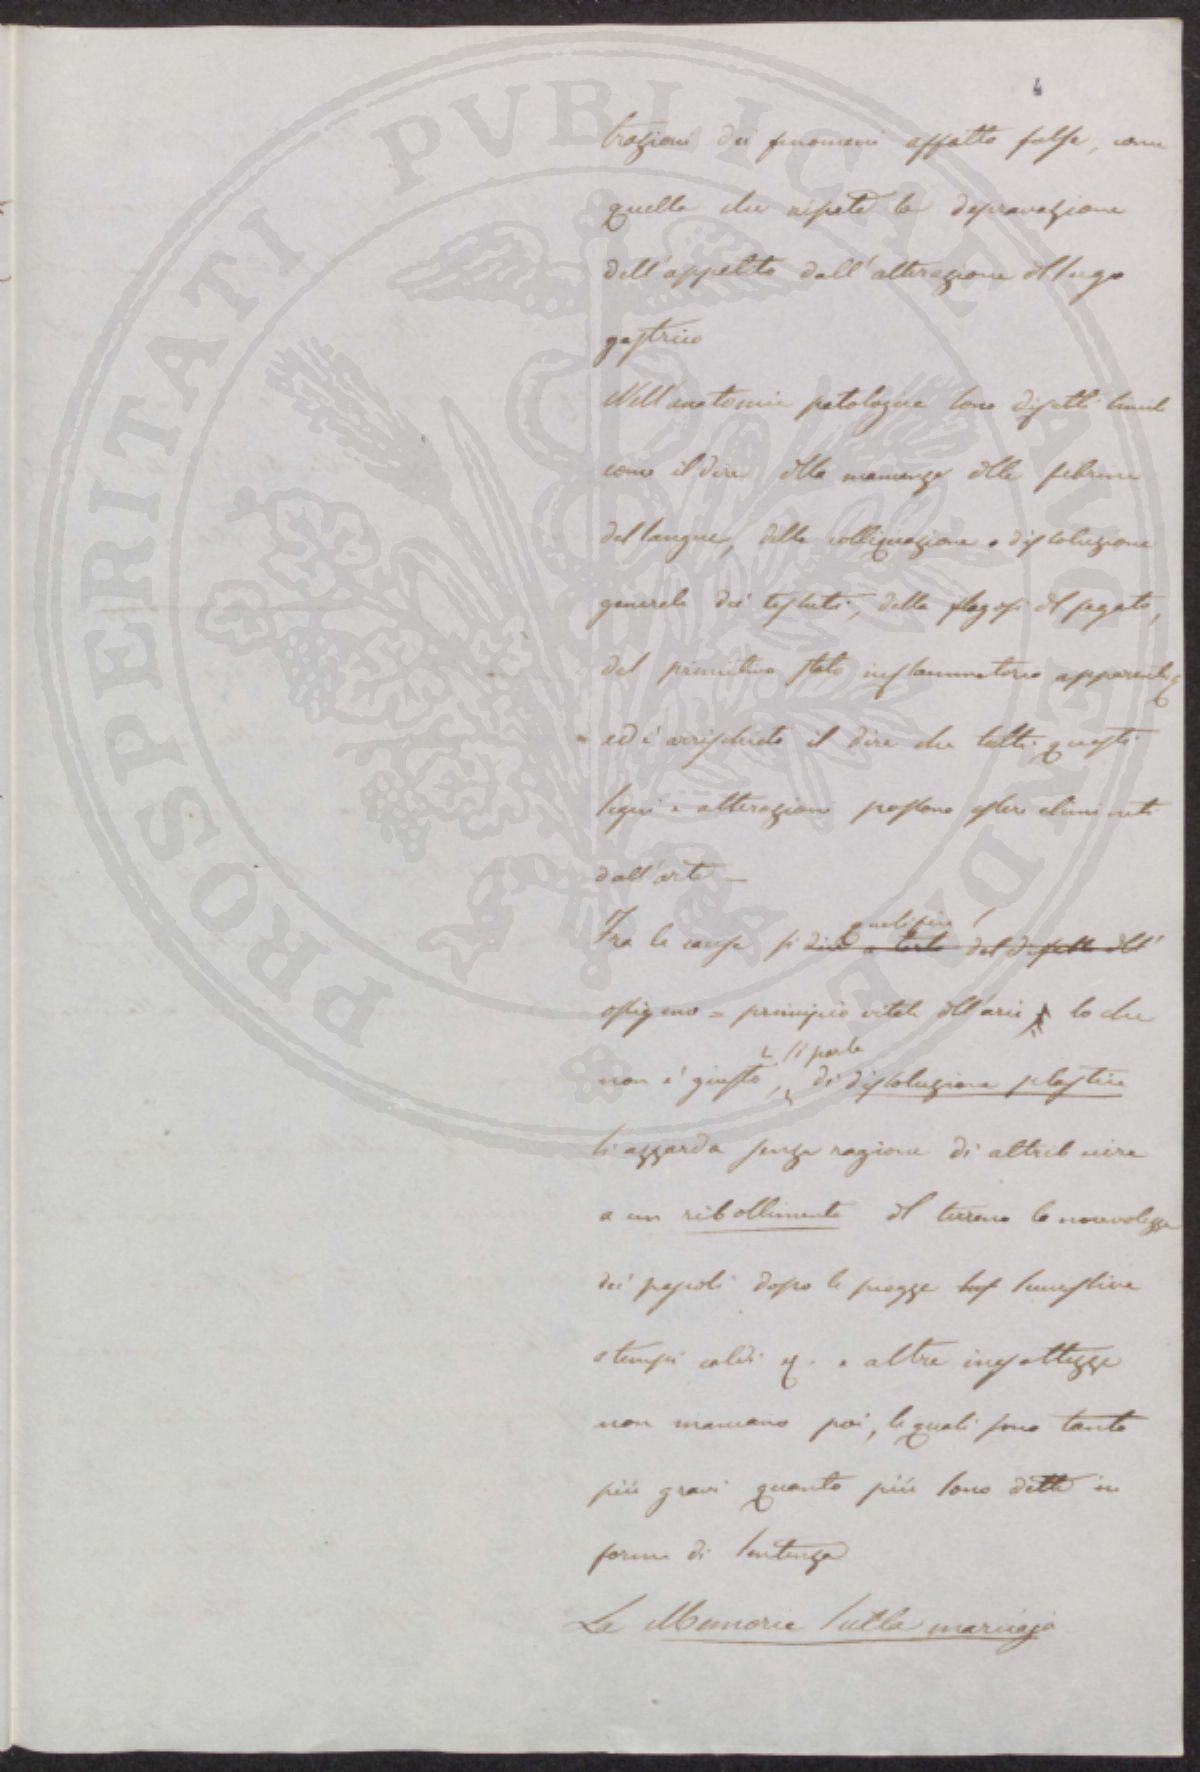 4
trazioni dei fenomeni affatto false, come
quella che ripete la depravazione
dell'appetito dall'alterazione del sugo
gastrico
Nell'anatomia patologica sono difetti simili
come il dire della mancanza della fibrina
del sangue, della colliquazione e dissoluzione
generale dei tessuti, della flogosi del fegato,
del primitivo stato inflammatorio apparente
ed è arrischiato il dire che tutti questi
segni e alterazioni possono essere eliminati
dall'arte —
Fra le cause si dice a torto del difetto dell'
qualifica l'
ossigeno = principio vitale dell'aria, lo che
non è giusto, si parla di dissoluzione plastica
si azzarda senza ragione di attribuire
a un ribollimento del terreno la nocevolezza
dei pascoli dopo le piogge sus semestive
e tempi caldi e altre inesattezze
non mancano poi, le quali sono tanto
più gravi quanto più sono dette in
forma di sentenza
La Memoria sulla marciaja
PROSPERITATI PVBLICAE AVGENDAE